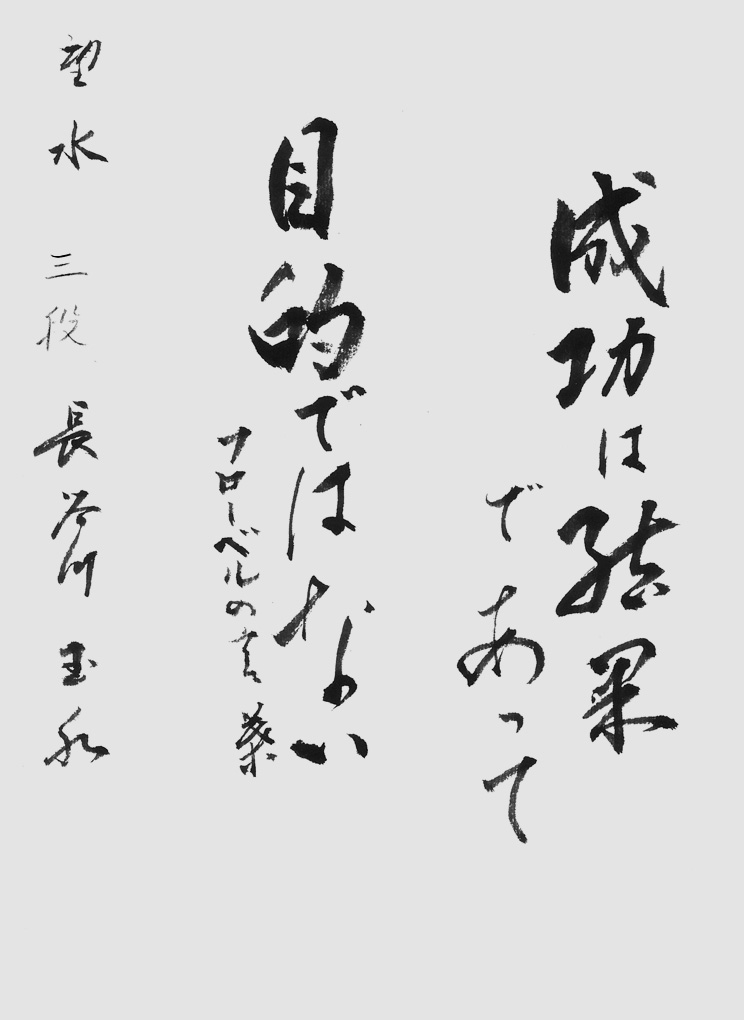 成功は結果
であって
目的ではない
フローベルの言葉
水 三段 長谷川 玉